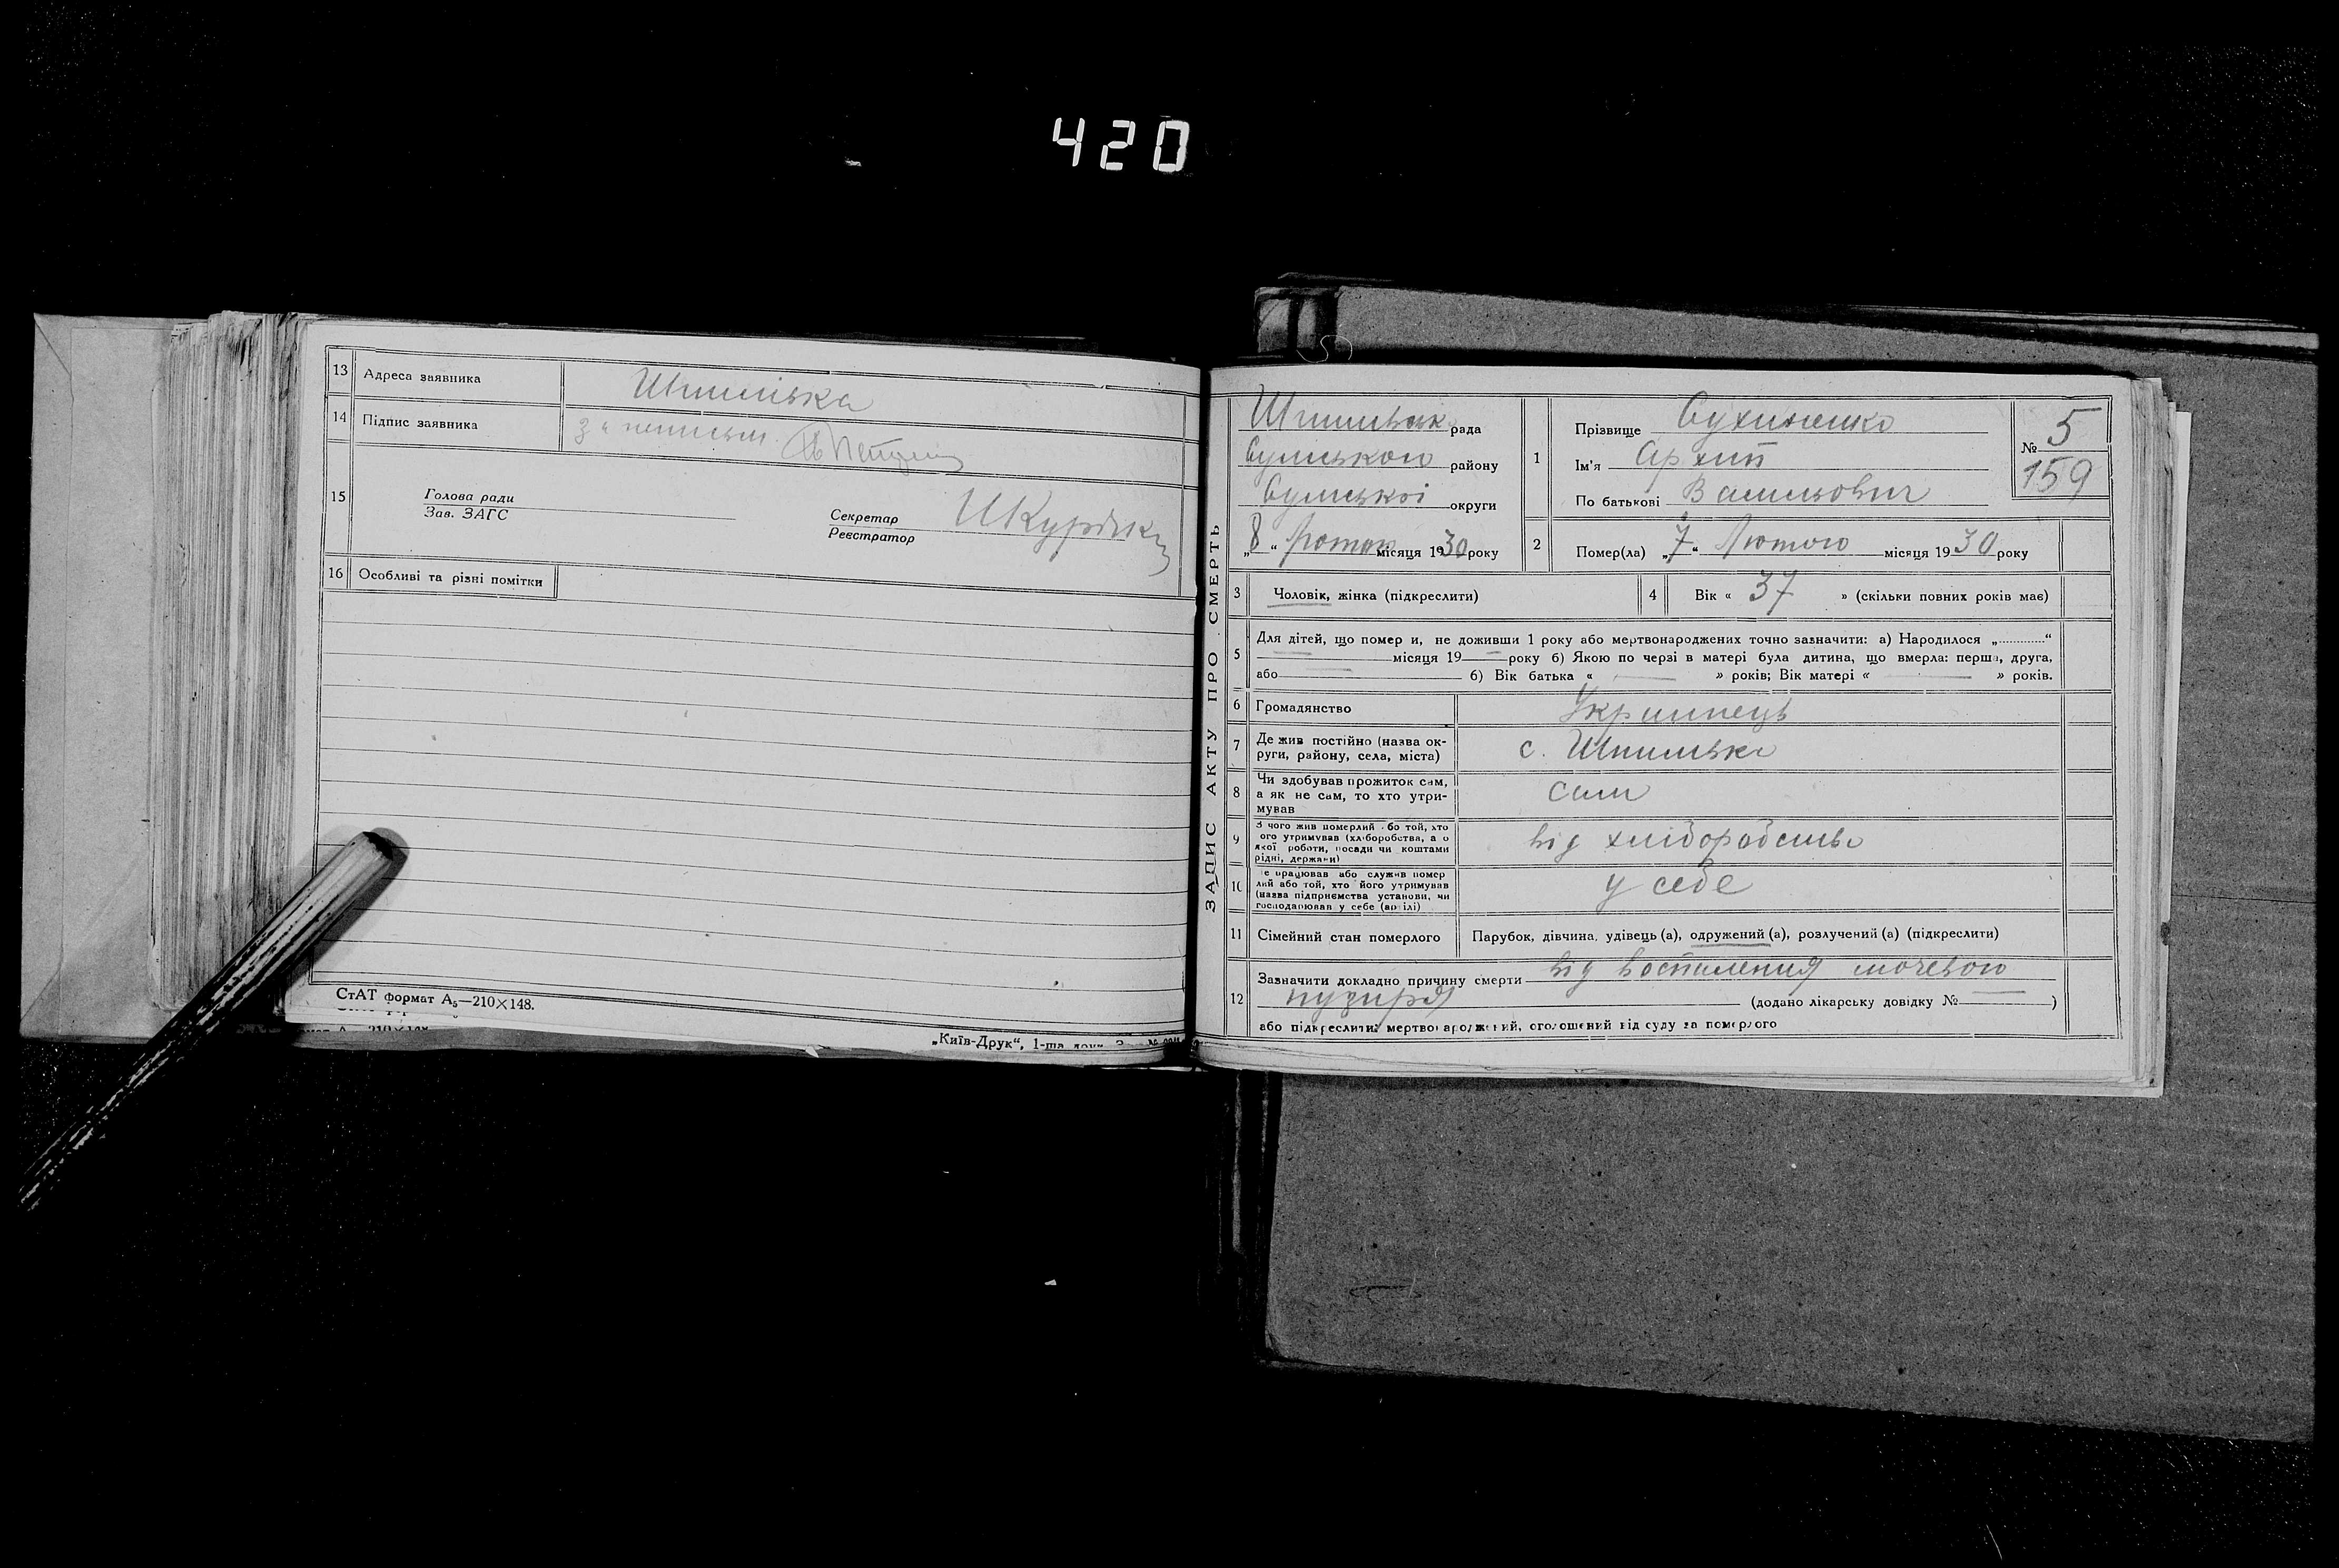 420
13 Адреса заявника Шпилівка
14 Підпис заявника
15 Голова ради
Зав. ЗАГС
Секретар
Реєстратор
16 Особливі та різні помітки
СтАТ формат А₅—210×148.
„Київ-Друк“, 1-ша
ЗАПИС АКТУ ПРО СМЕРТЬ
рада
Сумського району
Сумської округи
„8“ місяця 1930 року
1 Прізвище Сухиненко
Ім'я Архип
По батькові Васильович
№ 5
159
2 Помер(ла) „7“ Лютого місяця 1930 року
3 Чоловік, жінка (підкреслити)
4 Вік « 37 » (скільки повних років має)
5 Для дітей, що помер и, не доживши 1 року або мертвонароджених точно зазначити: а) Народилося „............“
місяця 19 року б) Якою по черзі в матері була дитина, що вмерла: перша, друга,
або б) Вік батька « » років; Вік матері « » років.
6 Громадянство Українець
7 Де жив постійно (назва ок-
руги, району, села, міста) с. Шпилівка
8 Чи здобував прожиток сам,
а як не сам, то хто утри-
мував сам
9 З чого жив померлий або той, хто
його утримував (хліборобства, а о
якої роботи, посади чи коштами
рідні, держави) від хліборобства
10 Де працював або служив помер
лий або той, хто його утримував
(назва підприємства установи, чи
господарював у себе (вдома)) у себе
11 Сімейний стан померлого Парубок, дівчина, удівець (а), одружений (а), розлучений (а) (підкреслити)
12 Зазначити докладно причину смерти від воспаления мочевого
пузиря (додано лікарську довідку № )
або підкреслити: мертвонароджений, оголошений від суду за померлого